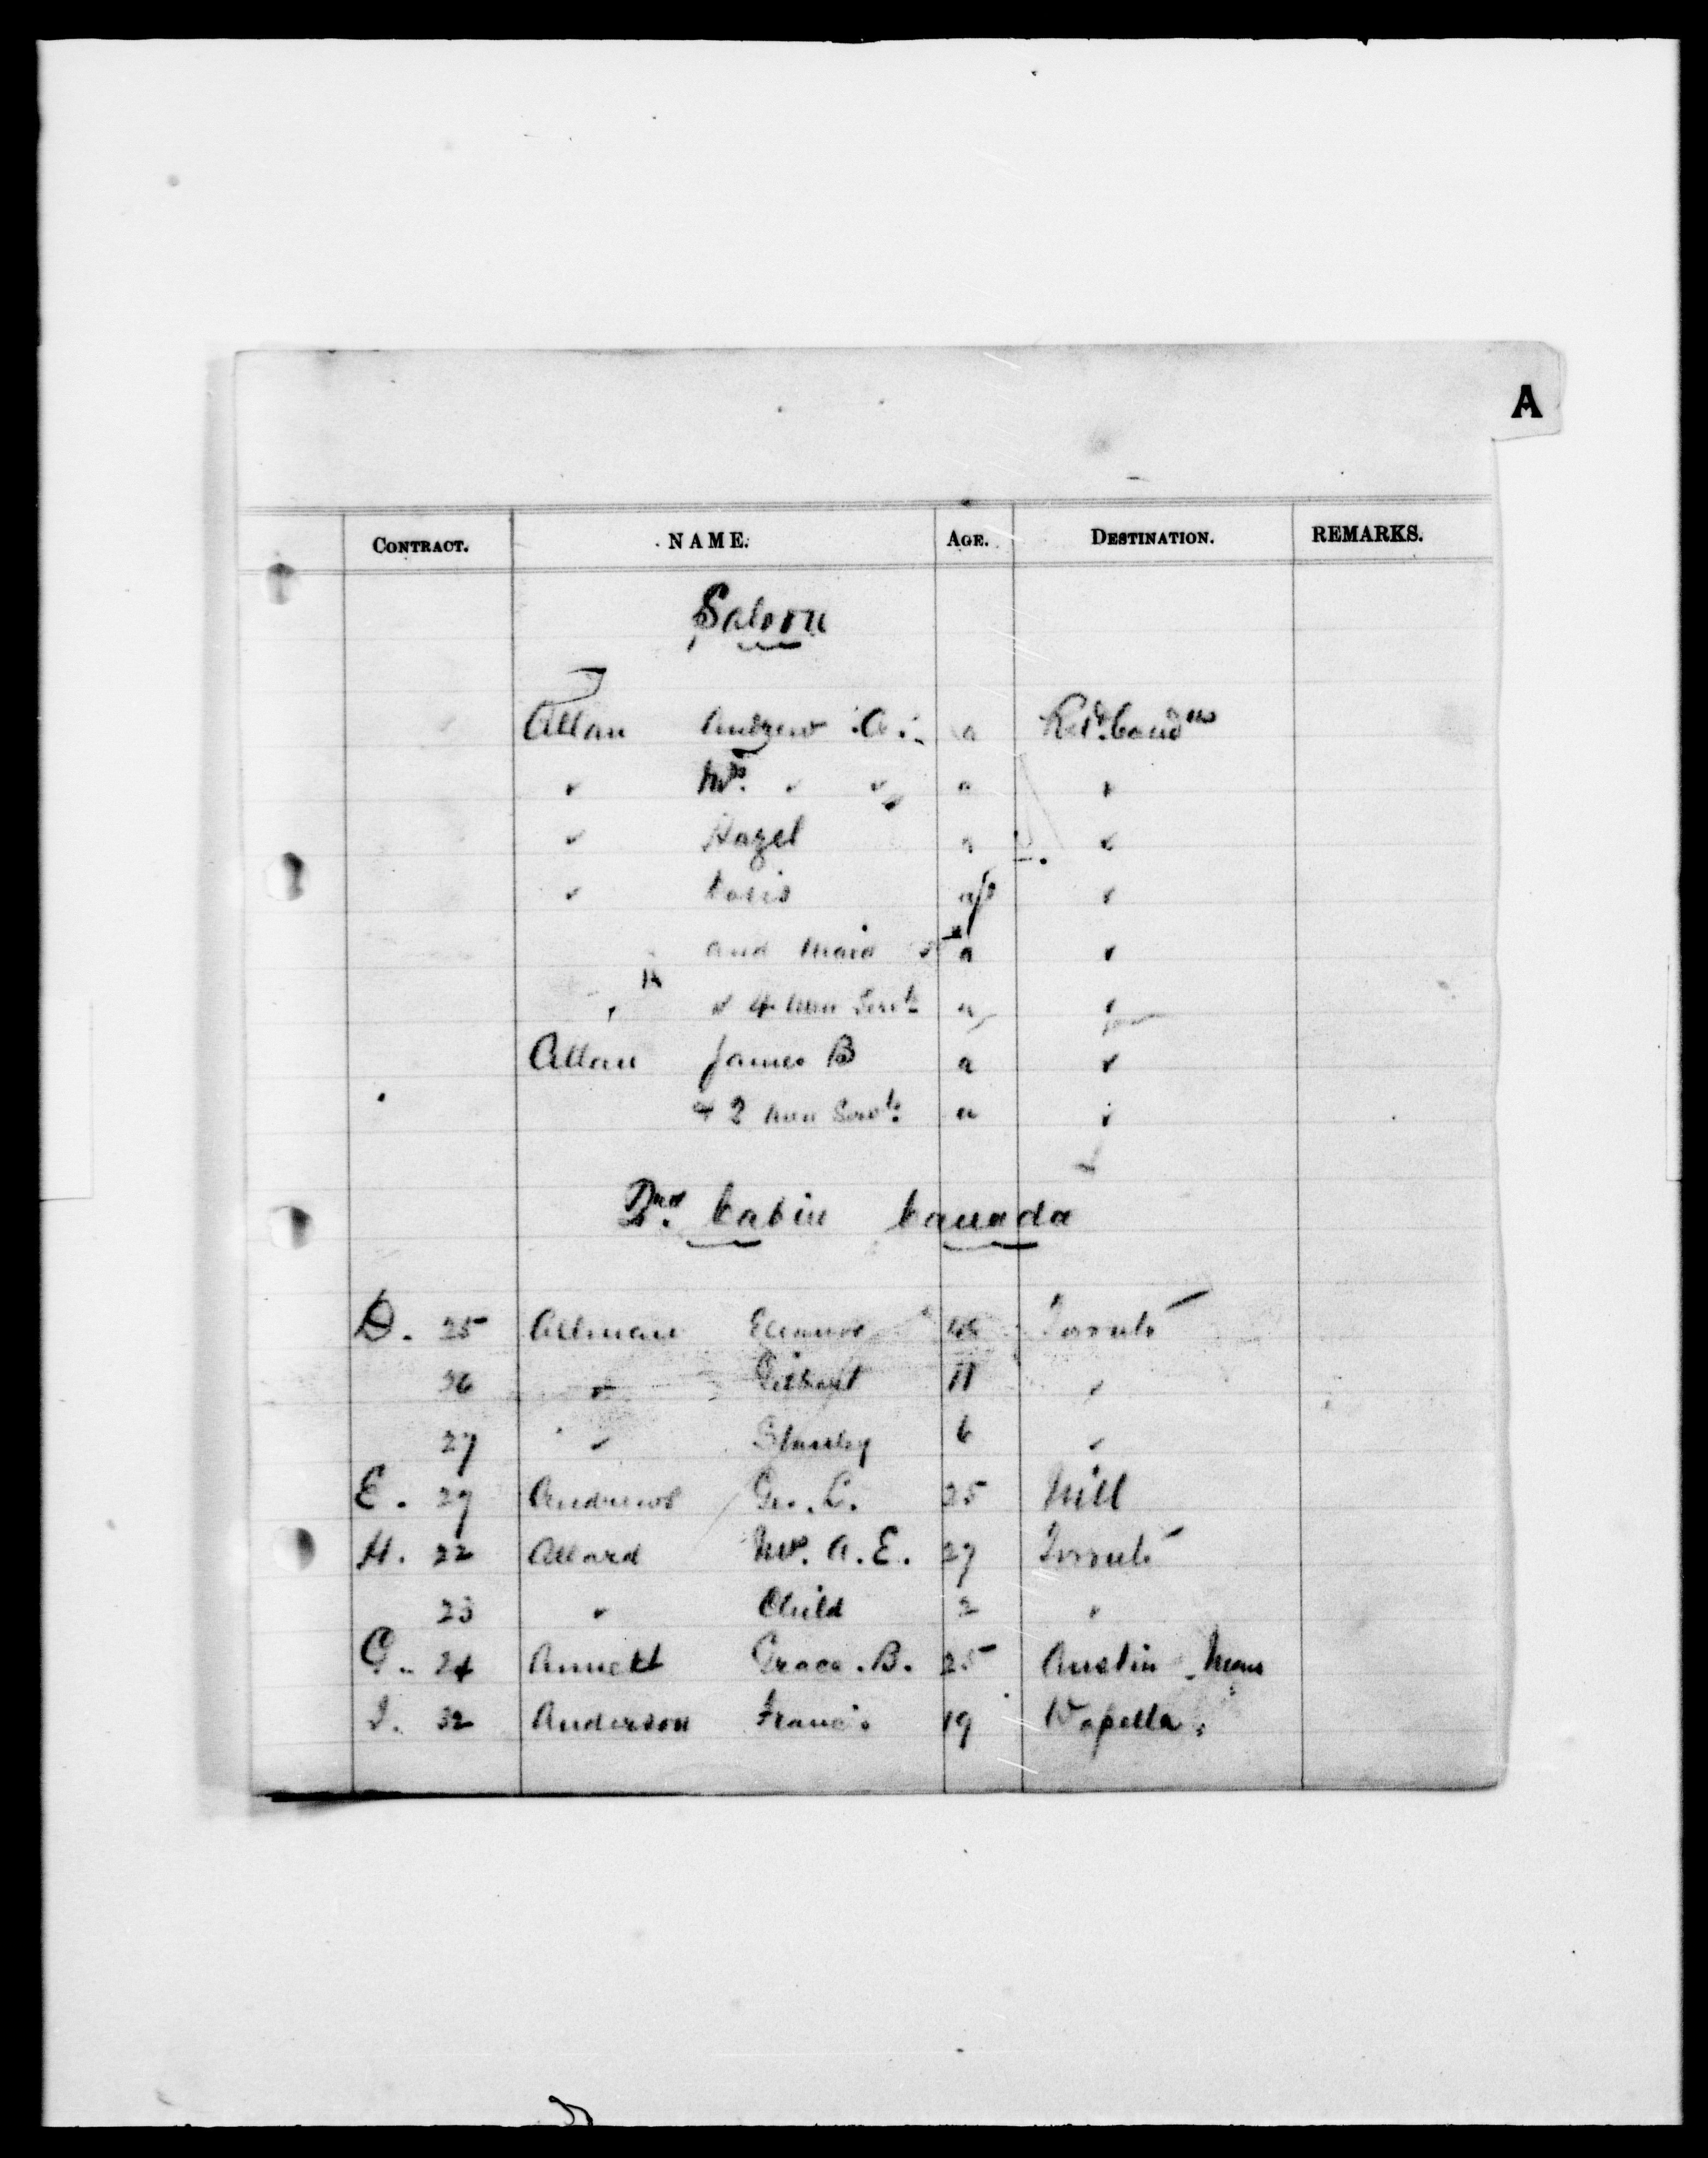 A
CONTRACT. NAME. AGE. DESTINATION. REMARKS.
Saloon
Allan Andrew A. a Retd. Candns
" Mrs. " " a "
" Hazel a "
" a/s "
and Maid a "
" 4 Men Servts a "
Allan James B a "
+ 2 Servts a "
2nd. Cabin Canada
D. 25 Allman Eleanor Toronto
26 " Gilbert 11 "
27 " Stanley 6 "
E. 27 Andrews Geo. C. 25 Mill
H. 22 Allard Mrs. A. E. 27 Toronto
23 " Child 2 "
G. 24 Annett Grace. B. 25 Austin
I. 32 Anderson Francis 19 Wapella